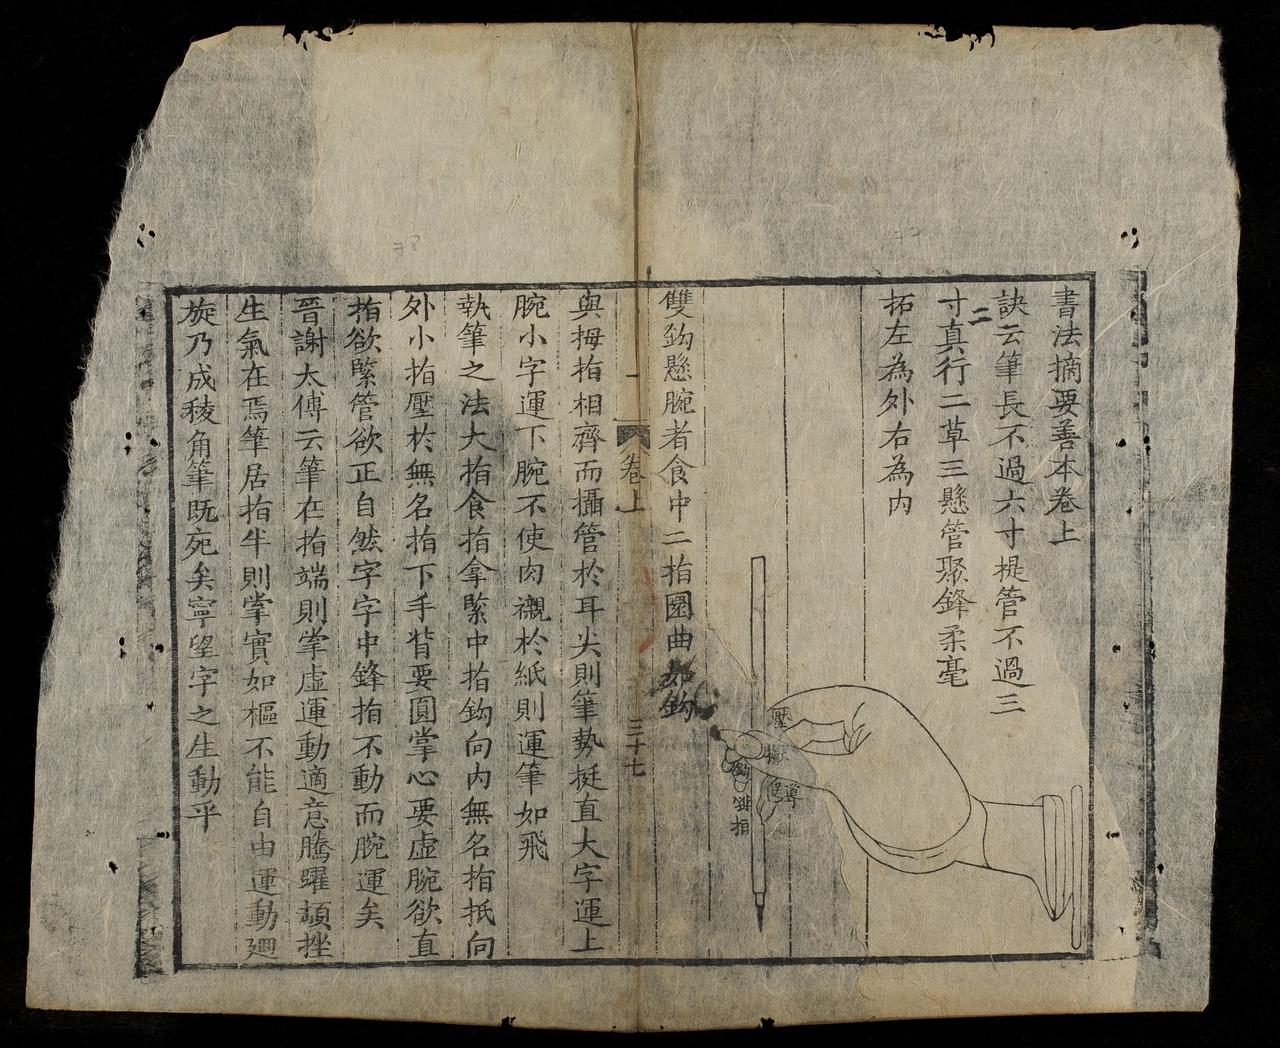 書法摘要善本卷上
訣云筆長不過六寸提管不過三
寸真行二草三懸管聚鋒柔毫
二
拓左為外右為内
壓
擫
導
送
鈎
指
雙鈎懸腕者食中二指圓曲如鈎
卷上
三十七
與拇指相齊而攝管於耳尖則筆勢挺直大字運上
腕小字運下腕不使肉襯於紙則運筆如飛
執筆之法大指食指拿緊中指鈎向内無名指抵向
外小指壓於無名指下手背要圓掌心要虛腕欲直
指欲緊管欲正自然字字中鋒指不動而腕運矣
晉謝太傅云筆在指端則掌虛運動適意騰躍頡挫
生氣在焉筆居指半則掌實如樞不能自由運動廻
旋乃成稜角筆既死矣寧望字之生動乎